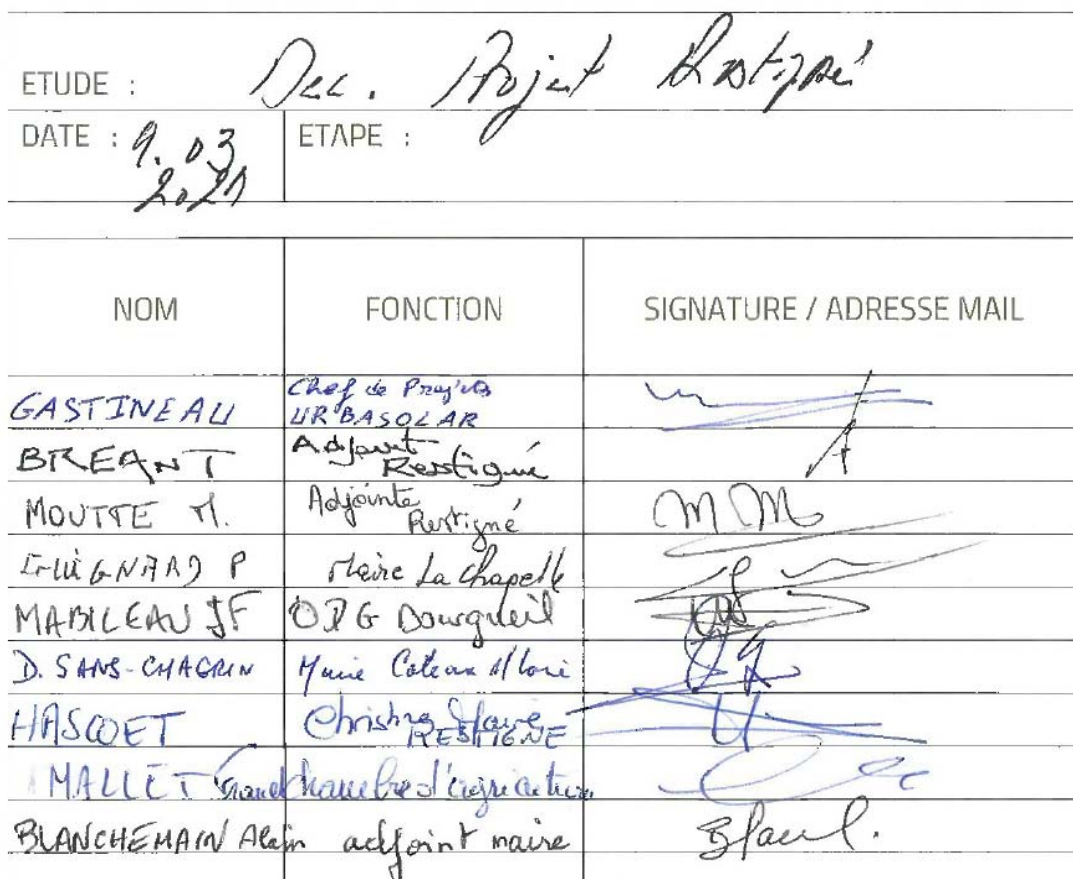 ETUDE : Dec. Projet Restigné
DATE : 9.03
2021
ETAPE :
NOM FONCTION SIGNATURE / ADRESSE MAIL
GASTINEAU Chef de Projets
URBASOLAR
BREANT Adjoint
Restigné
MOUTTE M. Adjointe
Restigné
GUIGNARD P Maire La Chapelle
MABILEAU JF ODG Bourgueil
D. SANS-CHAGRIN Mairie Coteaux s/ Loire
HASCOET Christine Maire
RESTIGNE
MALLET Chambre d'agriculture
BLANCHEMAIN Alain adjoint maire